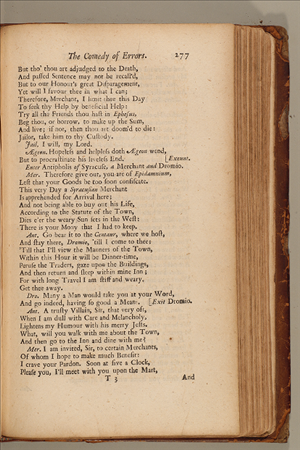 The Comedy of Errors. 277
But tho' thou art adjudged to the Death,
And passed Sentence may not be recall'd,
But to our Honour's great Disparagement,
Yet will I favour thee in what I can;
Therefore, Merchant, I limit thee this Day
To seek thy Help by beneficial Help:
Try all the Friends thou hast in Ephesus,
Beg thou, or borrow, to make up the Sum,
And live; if not, then thou art doom'd to die:
Jailor, take him to thy Custody.
Jail. I will, my Lord.
Ægeon. Hopeless and helpless doth Ægeon wend,
But to procrastinate his liveless End. [Exeunt.
Enter Antipholis of Syracuse, a Merchant and Dromio.
Mer. Therefore give out, you are of Epidamnium,
Lest that your Goods be too soon confiscate.
This very Day a Syracusan Merchant
Is apprehended for Arrival here;
And not being able to buy out his Life,
According to the Statute of the Town,
Dies e'er the weary Sun sets in the West:
There is your Mony that I had to keep.
Ant. Go bear it to the Centaur, where we host,
And stay there, Dromio, 'till I come to thee:
'Till that I'll view the Manners of the Town,
Within this Hour it will be Dinner-time,
Peruse the Traders, gaze upon the Buildings,
And then return and sleep within mine Inn;
For with long Travel I am stiff and weary.
Get thee away.
Dro. Many a Man would take you at your Word,
And go indeed, having so good a Mean. [Exit Dromio.
Ant. A trusty Villain, Sir, that very oft,
When I am dull with Care and Melancholy,
Lightens my Humour with his merry Jests.
What, will you walk with me about the Town,
And then go to the Inn and dine with me?
Mer. I am invited, Sir, to certain Merchants,
Of whom I hope to make much Benefit:
I crave your Pardon. Soon at five a Clock,
Please you, I'll meet with you upon the Mart,
T 3 And